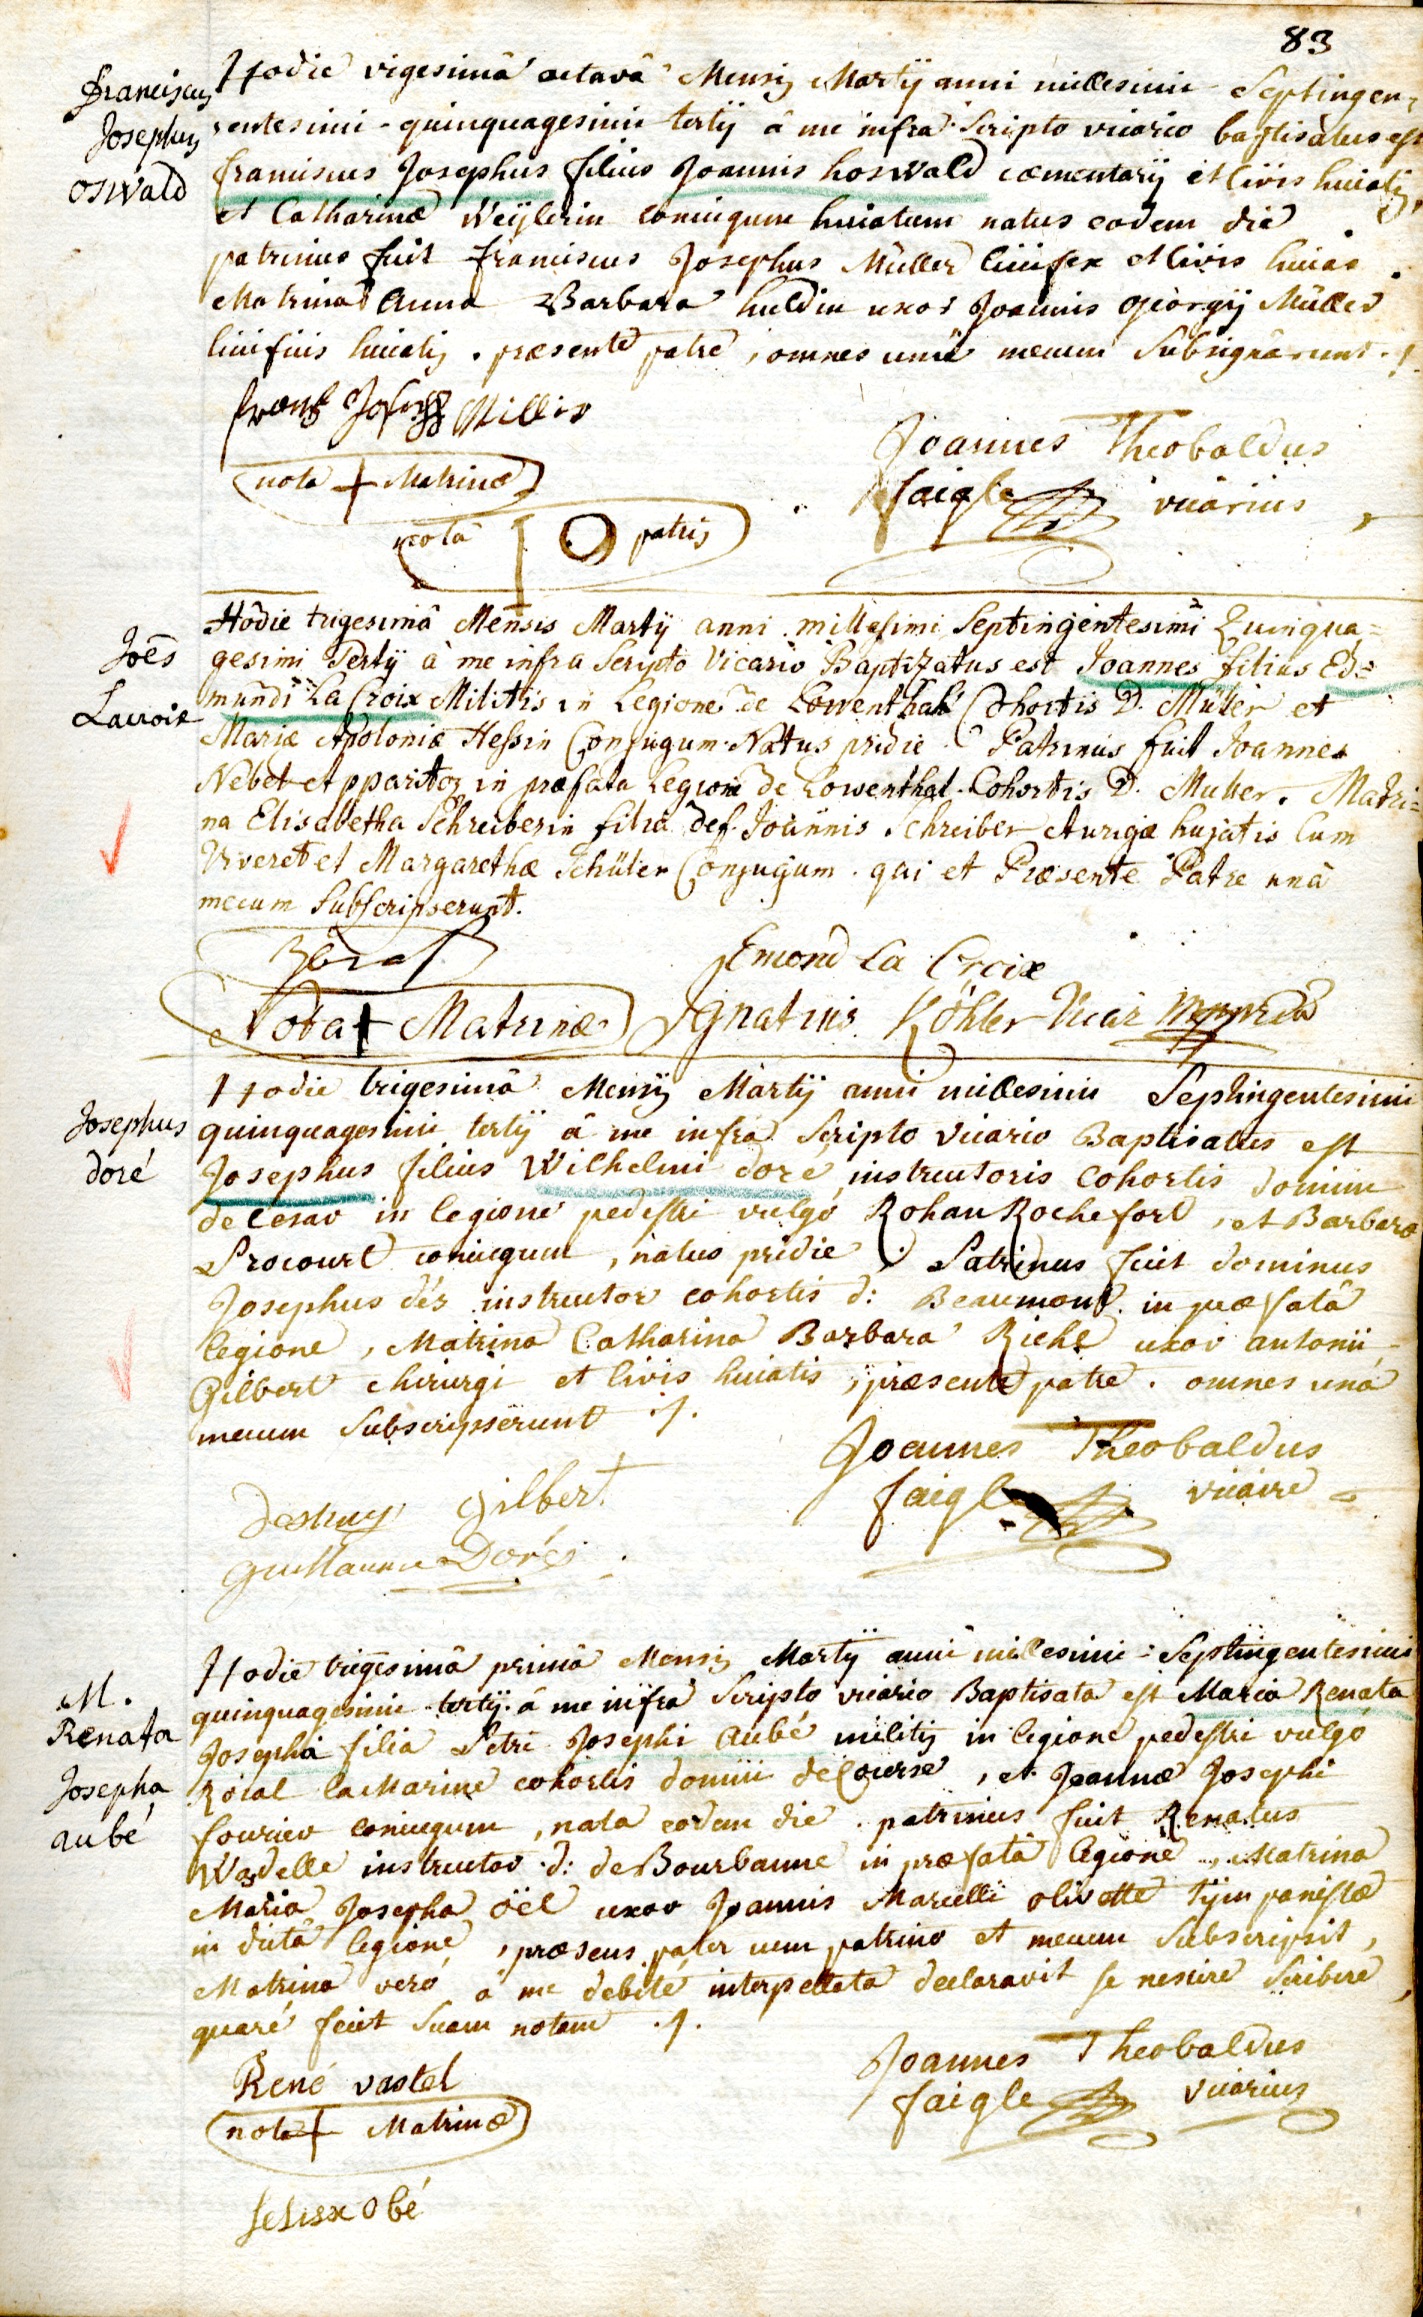 83
Franciscus
Josephus
Oswald
Hodie vigesimâ octavâ Mensis Martÿ anni millesimi Septingen-
tentesimi quinquagesimi tertÿ â me infra Scripto vicario baptisatus est
franciscus Josephus filius Joannis hoswald cæmentarÿ et civis huiatis,
et Catharinæ Weÿlerin coniugum huiatum natus eodem die
patrinus fuit franciscus Josephus Müller linifex et civis huias.
Matrina Anna Barbara huldin uxor Joannis georgÿ Müller
linificis huiatis. præsente patre, omnes unâ mecum Subsignârunt ./.
frantz Joseph Miller
nota + Matrinæ
nota O patris
Joannes Theobaldus
faigle vicârius
Joēs
Lacroix
Hôdie trigesimâ Mensis Martÿ anni millesimi Septingentesimi Quinqua=
gesimi Tertÿ à me infra Scripto Vicario Baptizatus est Joannes filius Ed=
mundi La Croix Militis in Legione de Löwenthal Cohortis D. Müller et
Mariæ Apoloniæ Hessin Conjugum. Natus pridie. Patrinus fuit Joannes
Nebet et pparitor in præfata Legione de Lowenthal. Cohortis D. Muller. Matri=
na Elisabetha Schreiberin filia def. Joannis Schreiber Aurigæ hujatis Cum
Viveret et Margarethæ Schüler Conjugum. qui et Præsente Patre unâ
mecum Subscripserunt.
Emond La Croix
Nota + Matrinæ Ignatius Köhler Vicar mppria
Josephus
doré
Hodie trigesimâ Mensis Martÿ anni millesimi Septingentesimi
quinquagesimi tertÿ â me infra Scripto vicario Baptisatus est
Josephus filius Wilhelmi doré, instructoris Cohortis domini
de Cesar in legione pedestri vulgó Rohan Rochefort, et Barbaræ
Procourt coniugum, natus pridie. Patrinus fuit dominus
Josephus dés instructor cohortis d: Beaumont in præfatâ
legione, Matrina Catharina Barbara Riehl uxor antonii
Gilbert chirurgi et Civis huiatis, præsente patre. omnes unâ
mecum Subscripserunt ./.
Gilbert
guillaume Doré
Joannes Theobaldus
faigle vicaire
M.
Renata
Josepha
aubé
Hodie trigesimâ primâ Mensis Martÿ anni millesimi Septingentesimi
quinquagesimi tertÿ â me infrâ Scripto vicario Baptisata est Maria Renata
Josepha filia Petri Josephi Aubé militis in legione pedestri vulgó
Roïal la Marine cohortis domini de Course, et Joannæ Josephi
fourier coniugum, nata eodem die. patrinus fuit Renatus
Wasdelle instructor d: de Bourbanne in præfatâ legione, Matrina
Maria Josepha oël uxor Joannis Marcelli olivette tÿmpanistæ
in dictâ legione, præsens pater cum patrino et mecum Subscripsit,
Matrina veró â me debité interpellata declaravit se nescire Scribere,
quaré fecit Suam notam ./.
René vastel
nota + Matrinæ
Obé
Joannes Theobaldus
faigle vicarius